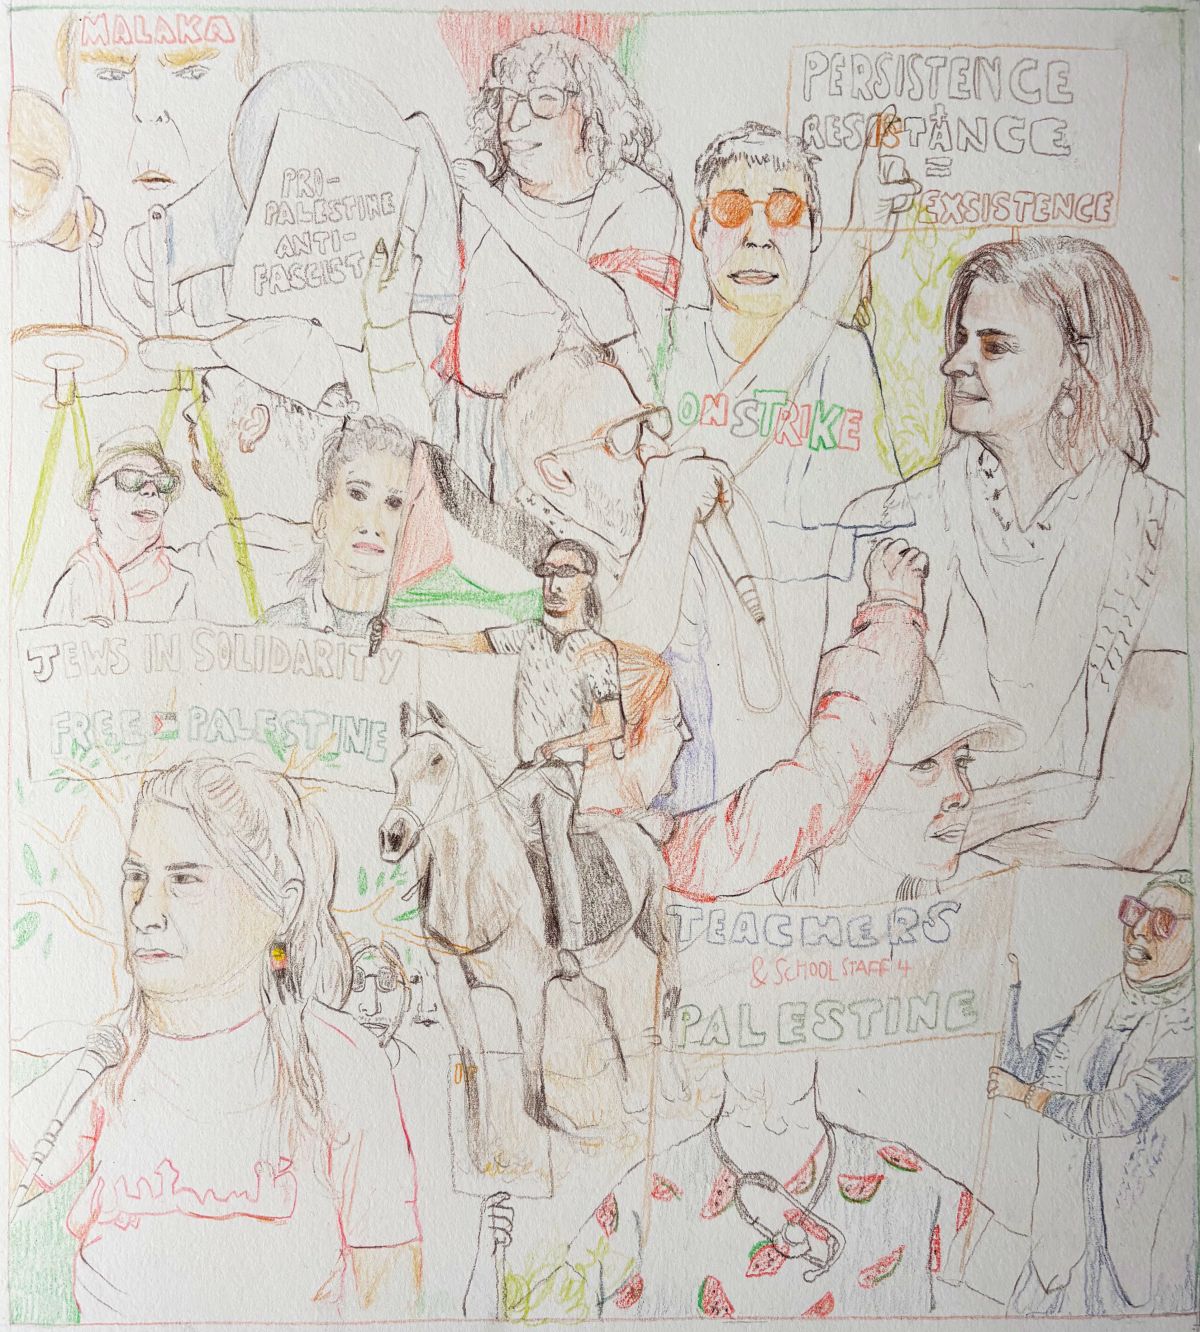 MALAKA
PRO-
PALESTINE
ANTI-
FASCIST
PERSISTENCE
+
RESISTANCE
=
EXSISTENCE
ON STRIKE
JEWS IN SOLIDARITY
FREE PALESTINE
TEACHERS
& SCHOOL STAFF 4
PALESTINE
فلسطين